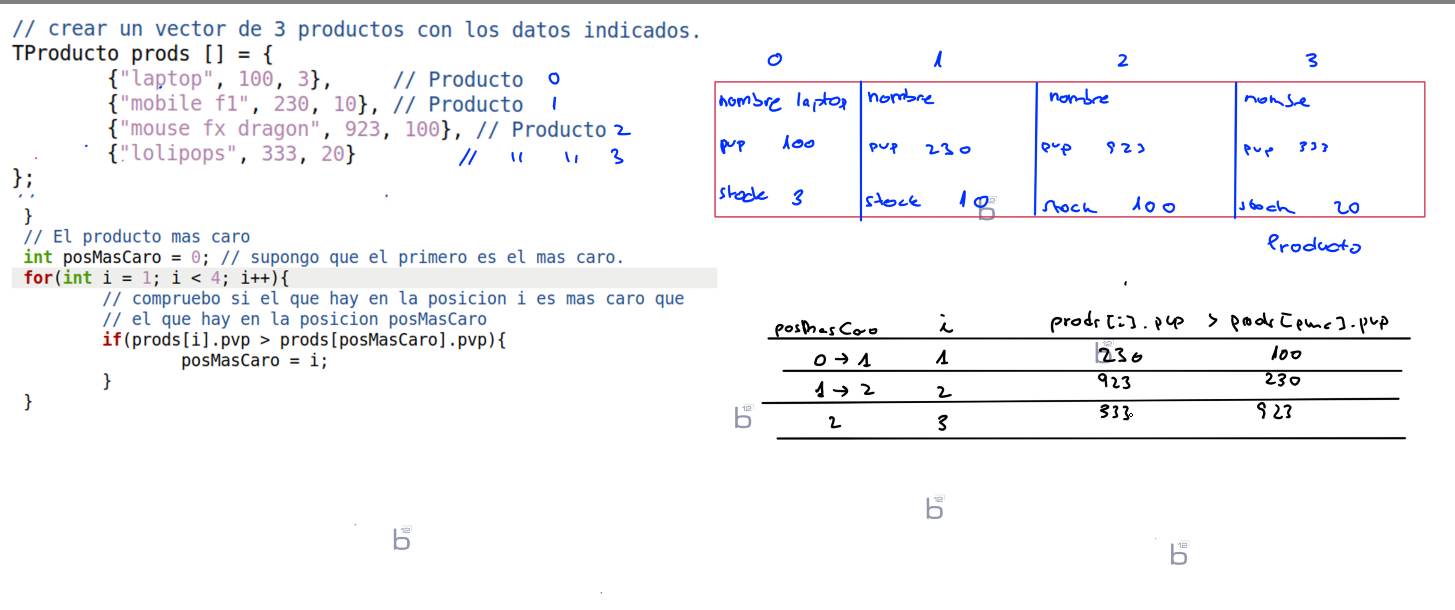 // crear un vector de 3 productos con los datos indicados.
TProducto prods [] = {
{"laptop", 100, 3}, // Producto 0
{"mobile f1", 230, 10}, // Producto 1
{"mouse fx dragon", 923, 100}, // Producto 2
{"lolipops", 333, 20} // " " 3
};
}
// El producto mas caro
int posMasCaro = 0; // supongo que el primero es el mas caro.
for(int i = 1; i < 4; i++){
// compruebo si el que hay en la posicion i es mas caro que
// el que hay en la posicion posMasCaro
if(prods[i].pvp > prods[posMasCaro].pvp){
posMasCaro = i;
}
}
0 1 2 3
nombre laptop nombre nombre nombre
pvp 100 pvp 230 pvp 923 pvp 333
stock 3 stock 10 stock 100 stock 20
Producto
posMasCaro i prods[i].pvp > prods[pmc].pvp
0 → 1 1 230 100
1 → 2 2 923 230
2 3 333 923
b12
b12
b12
b12
b12
b12